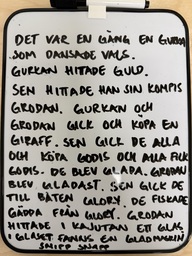 DET VAR EN GÅNG EN GURKA
SOM DANSADE VALS.
GURKAN HITTADE GULD.
SEN HITTADE HAN SIN KOMPIS
GRODAN. GURKAN OCH
GRODAN GICK OCH KÖPA EN
GIRAFF. SEN GICK DE ALLA
OCH KÖPA GODIS OCH ALLA FICK
GODIS. DE BLEV GLADA. GRODAN
BLEV GLADAST. SEN GICK DE
TILL BÅTEN GLORY. DE FISKADE
GÄDDA FRÅN GLORY. GRODAN
HITTADE I KAJUTAN ETT GLAS
I GLASET FANNS EN GLADMASKIN
SNIPP SNAPP